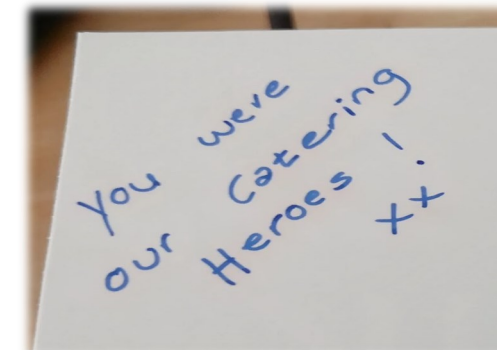 you were
our Catering
Heroes !
xx